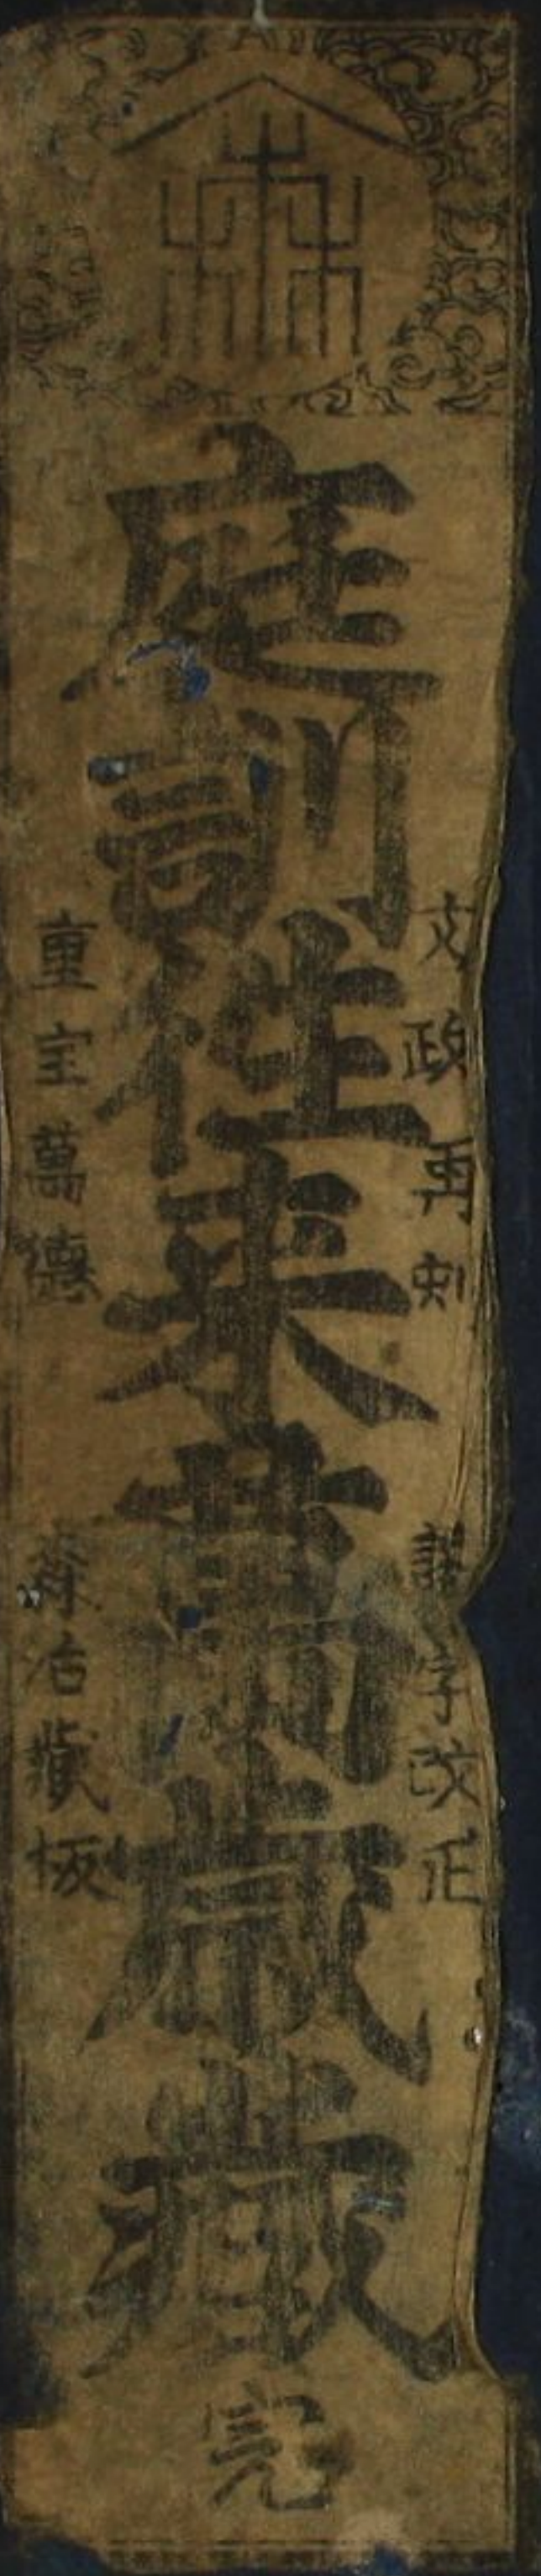 文政再刻　誤字改正
庭訓往来萬歳藏　完
重宝萬徳　森治蔵板